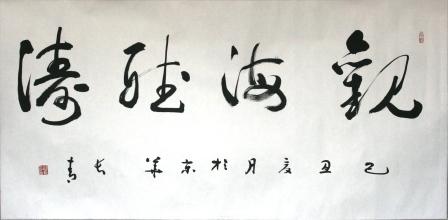 觀海聽濤
己丑夏月於京華長青